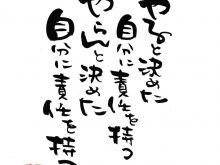 やると決めた
自分に責任を持つ
やらんと決めた
自分に責任を持つ